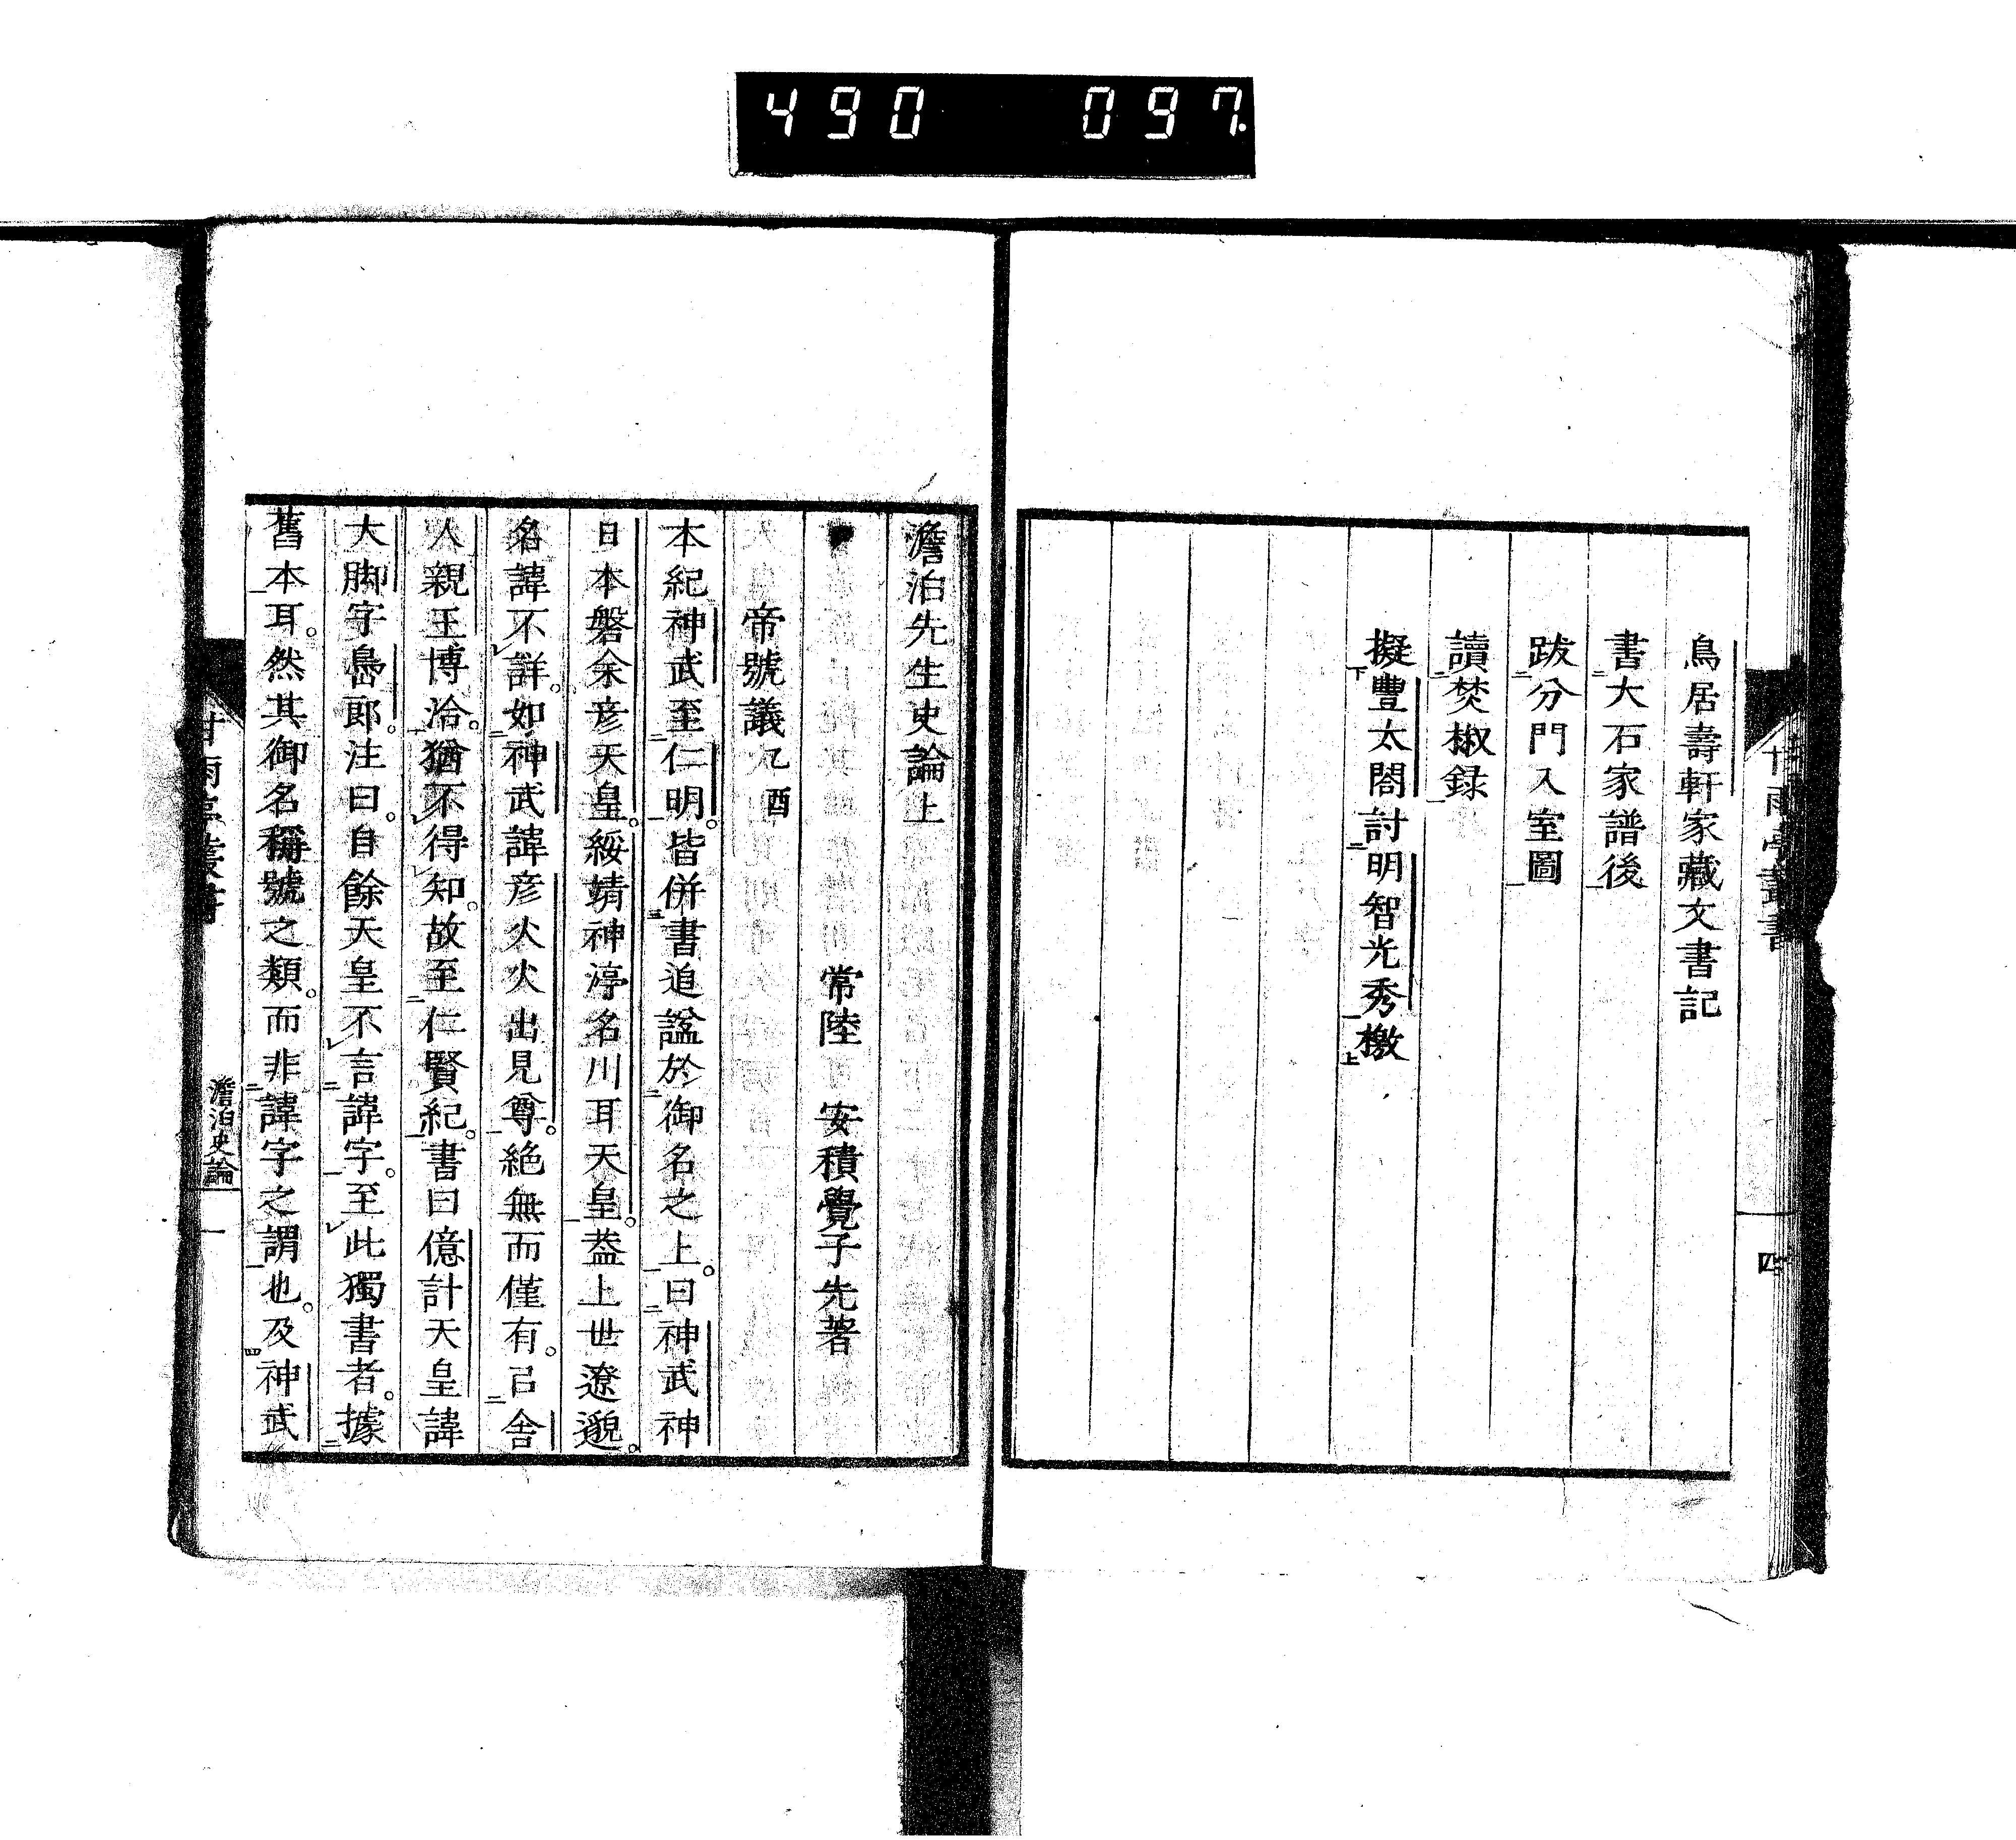 490 097
鳥居壽軒家藏文書記
書大石家譜後
跋分門入室圖
讀焚椒録
擬豐太閤討明智光秀檄
甘雨亭叢書
四
澹泊先生史論上
常陸 安積覺子先著
帝號議乙酉
本紀神武至仁明。皆併書追諡於御名之上。曰神武神
日本磐余彦天皇。綏靖神渟名川耳天皇。葢上世遼邈。
名諱不詳。如神武諱彦火火出見尊。絶無而僅有。已舍
人親王博洽。猶不得知。故至仁賢紀。書曰億計天皇諱
大脚字島郎。注曰。自餘天皇不言諱字。至此獨書者。據
舊本耳。然其御名稱號之類。而非諱字之謂也。及神武
甘雨亭叢書
澹泊史論
一